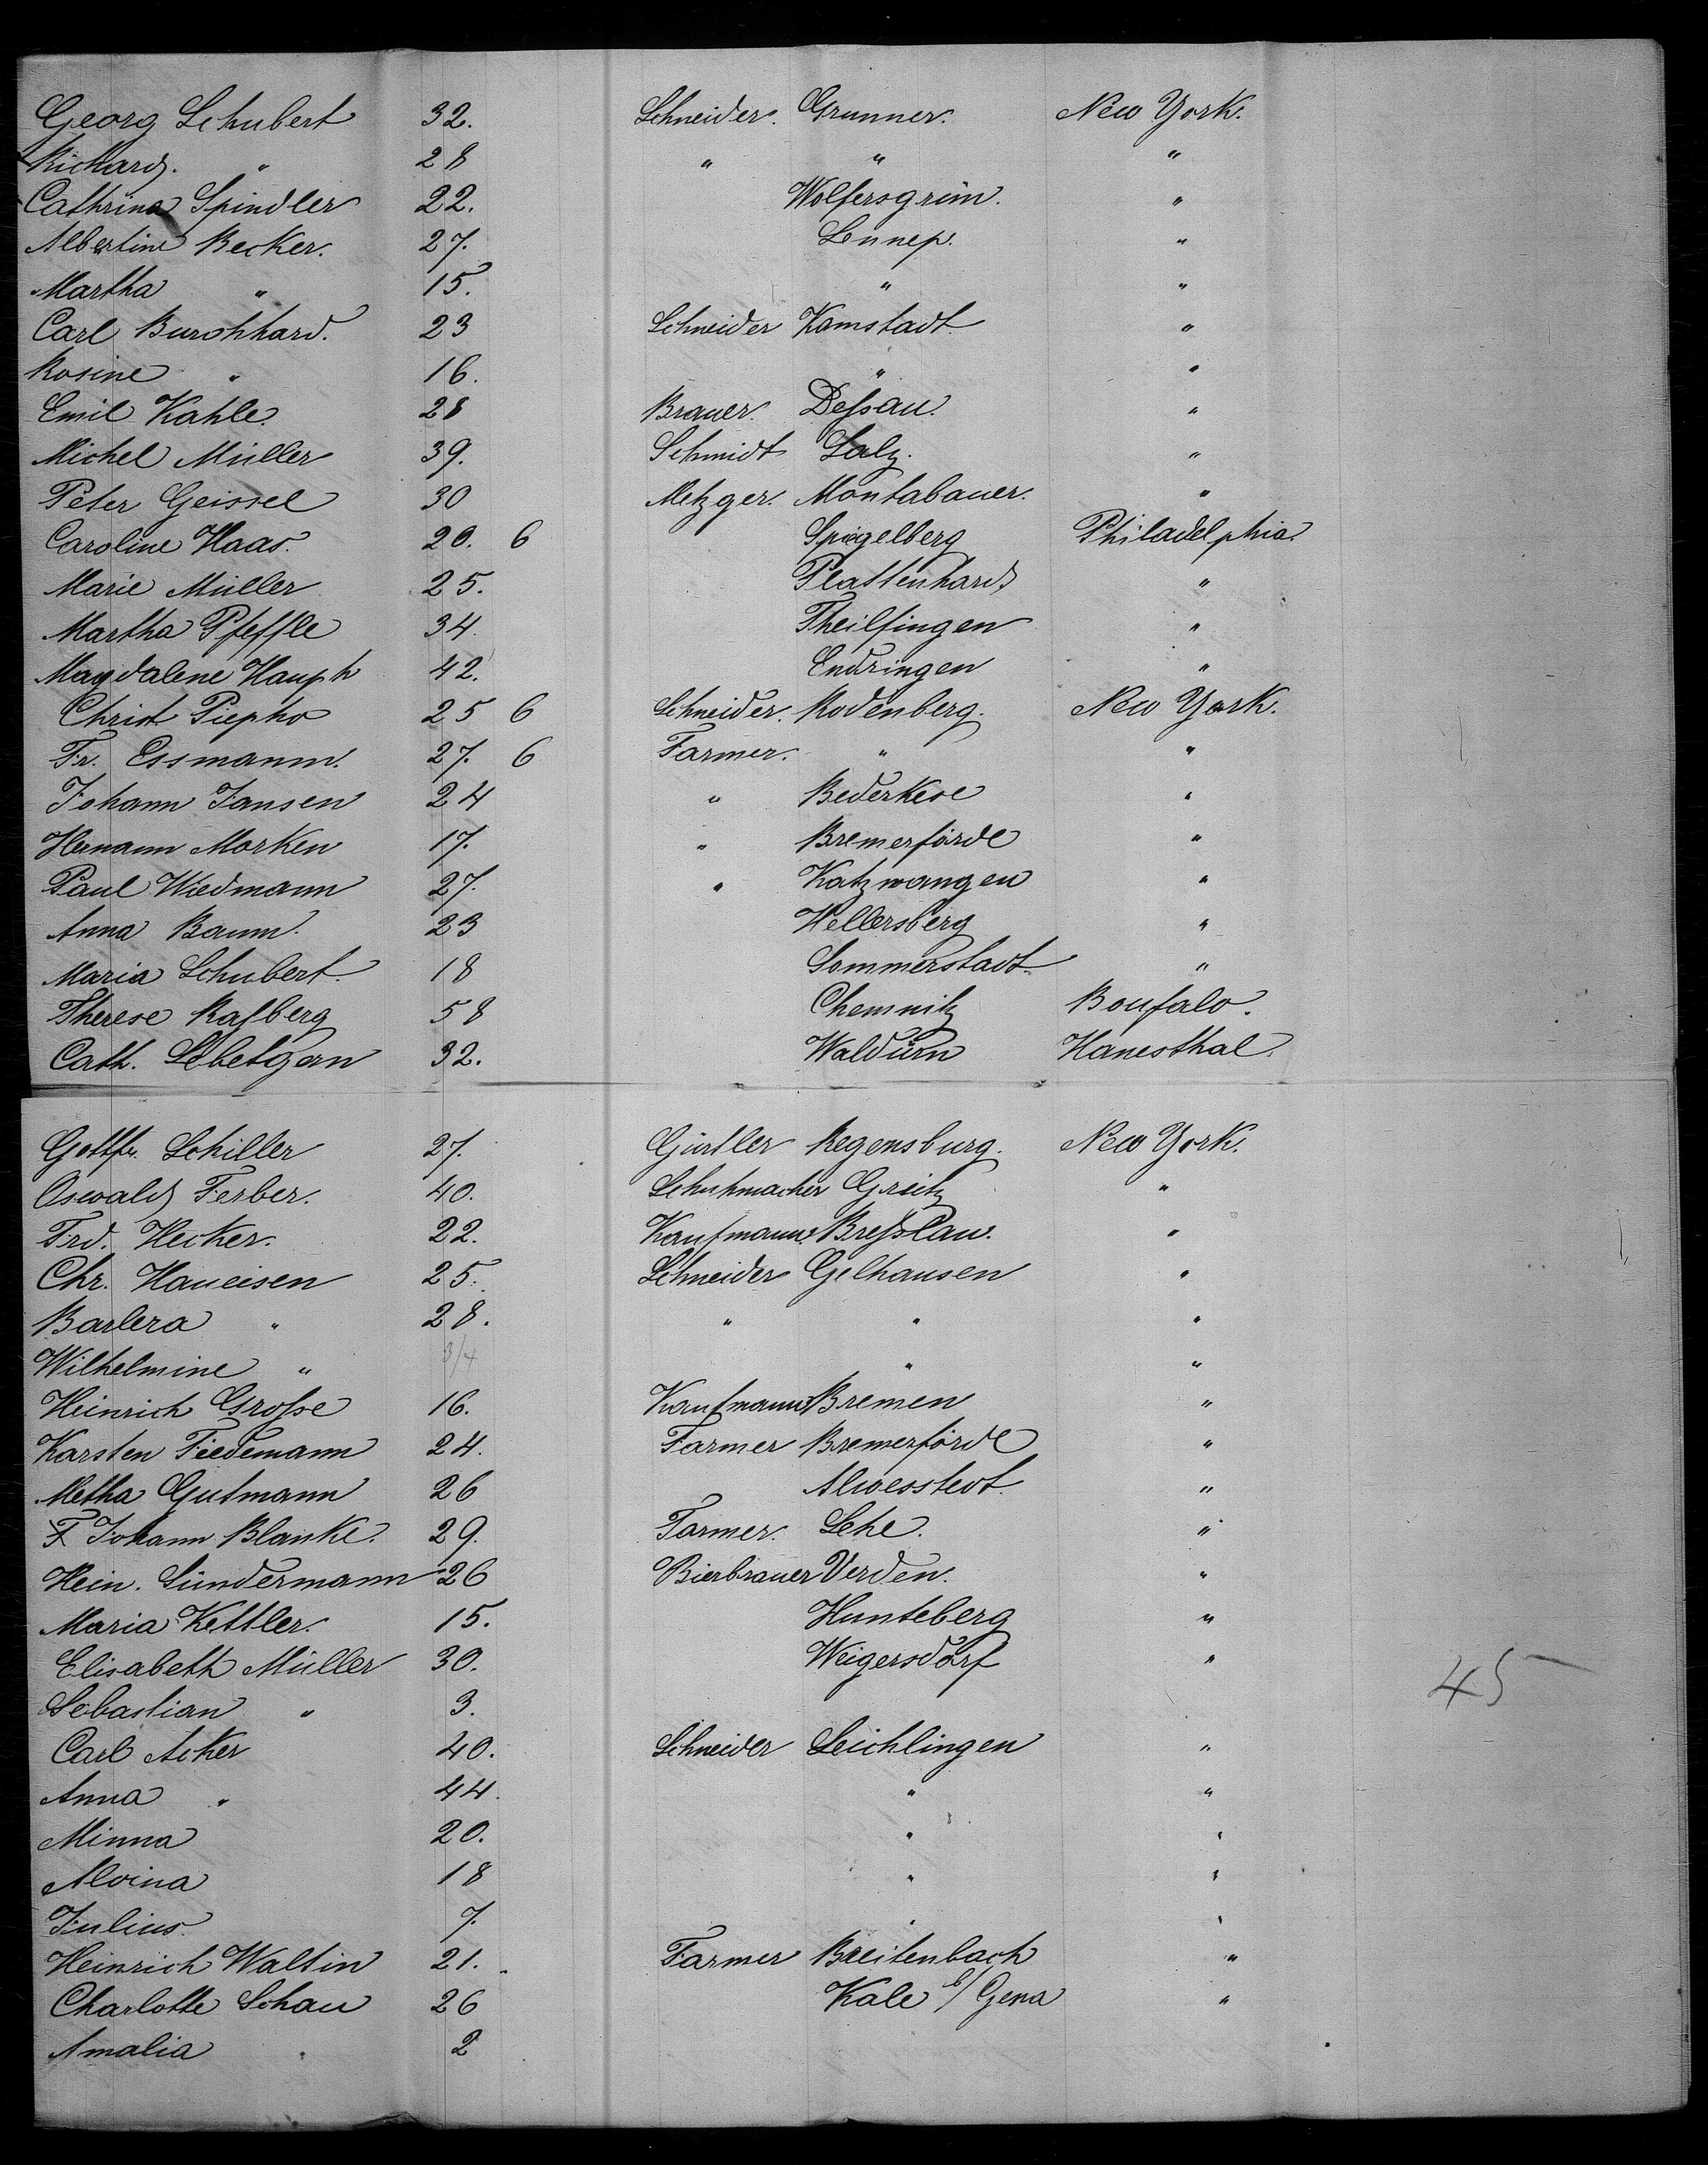 Georg Schubert 32. Schneider. Grunner. New York.
Richard. " 28 " " "
Cathrina Spindler 22. Wolfersgrün. "
Albertine Becker. 27. Lennep. "
Martha " 15. " "
Carl Burchhard. 23 Schneider Kamstadt "
Rosine " 16. " "
Emil Kahle. 28 Brauer. Deſsau. "
Michel Müller 39. Schmidt Salz. "
Peter Geissel 30 Metzger. Montabauer. "
Caroline Haas. 20. 6 Spiegelberg Philadelphia.
Marie Müller 25. Plattenhard "
Martha Pfeffle 34. Theilfingen "
Magdalene Hauph 42. Endringen "
Christ Piepho 25 6 Schneider. Rodenberg. New York.
Fr. Essmann. 27. 6 Farmer. " "
Johann Jansen 24 " Bederkese "
Hermann Morken 17. " Bremerförde "
Paul Wiedmann 27. " Katzwangen "
Anna Baum. 23 Hellersberg "
Maria Schubert. 18 Sommerstadt "
Therese Raſberg 58 Chemnitz Boufalo.
Cath. 32. Waldürn Hanesthal.
Gottfr. Schiller 27. Gürtler Regensburg. New York.
Oswald Ferber. 40. Schuhmacher Greitz "
Frd. Hecker. 22. Kaufmann. Breſslau. "
Chr. Haueisen 25. Schneider Gelhausen "
Barlera " 28. " " "
Wilhelmine " 3/4 " "
Heinrich Groſse 16. Kaufmann Bremen "
Karsten Tiedemann 24. Farmer Bremerförde "
Metha Gutmann 26 Alvesstedt. "
F Johann Blanke. 29. Farmer. Lehe. "
Hein. Sündermann 26 Bierbrauer Verden. "
Maria Kettler. 15. Hunteberg "
Elisabeth Müller 30. Weigersdorf " 45
Sebastian " 3.
Carl Acker 40. Schneider Leichlingen "
Anna " 44. " "
Minna 20. " "
Alvina 18 " "
Julius. 7. " "
Heinrich Waltin 21. Farmer Breitenbach "
Charlotte Schau 26 Kale b/ Gena "
Amalia 2